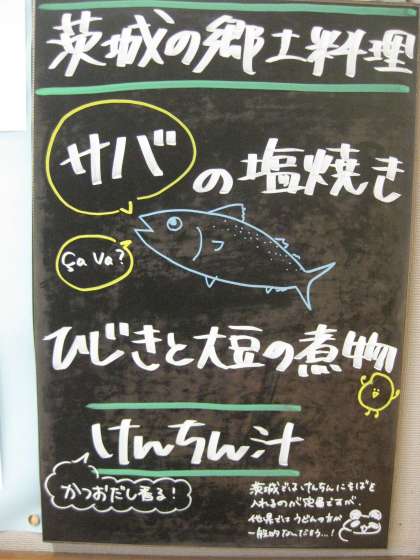 茨城の郷土料理
サバの塩焼き
Ça Va?
ひじきと大豆の煮物
けんちん汁
かつおだし香る！
茨城ではけんちんにそばを
入れるのが定番ですが、
他県ではうどんの方が
一般的なんだそう…！